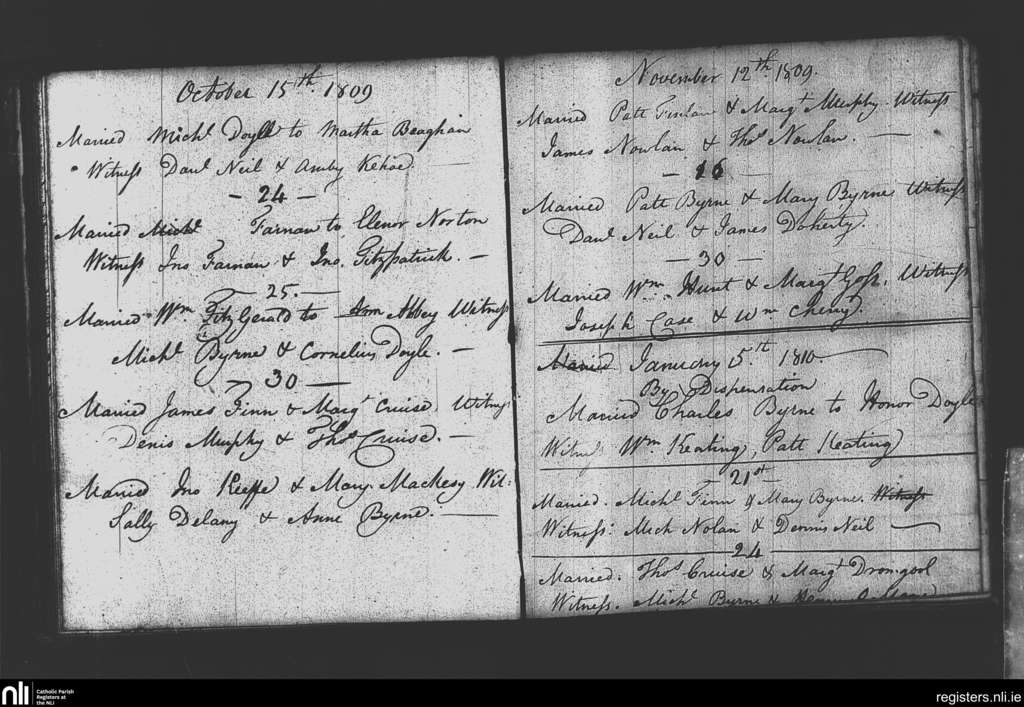 October 15th 1809
Married Michl Doyle to Martha Beaghan
Witness Danl Neil & Amby Kehoe
- 24 -
Married Michl Farnan to Elenor Norton
Witness Jno Farnan & Jno. Fitzpatrick. -
- 25. -
Married Wm FitzGerald to Ann Abbey Witness
Michl Byrne & Cornelius Doyle. -
- 30 -
Married James Finn & Margt Cruise Witness
Denis Murphy & Thos Cruise. -
Married Jno Keeffe & Mary Mackesy Wit:
Sally Delany & Anne Byrne. -
November 12th 1809.
Married Patt & Margt Murphy Witness
James Nowlan & Thos Nowlan. -
- 16 -
Married Patt Byrne & Mary Byrne Witness
Danl Neil & James Doherty.
- 30 -
Married Wm Hunt & Margt Goss, Witness
Joseph Case & Wm Cherry.
Married January 5th 1810
By Dispensation
Married Charles Byrne to Honor Doyle
Witness Wm Keating, Patt Keating
21st
Married. Michl Finn & Mary Byrne. Witness
Witness: Mich Nolan & Dennis Neil -
24
Married. Thos Cruise & Margt Dromgool
Witness. Michl Byrne &
nli
Catholic Parish
Registers at
the NLI
registers.nli.ie